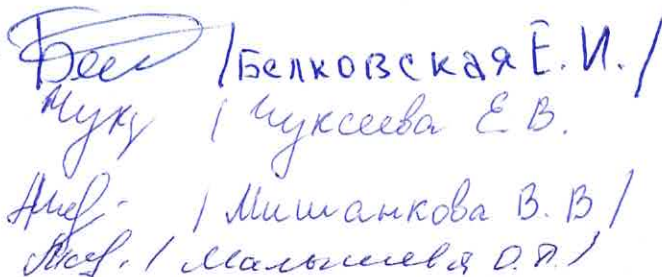 /Белковская Е. И./
/ Чуксеева Е. В.
/ Мишанкова В. В/
/ Малышева О.П./